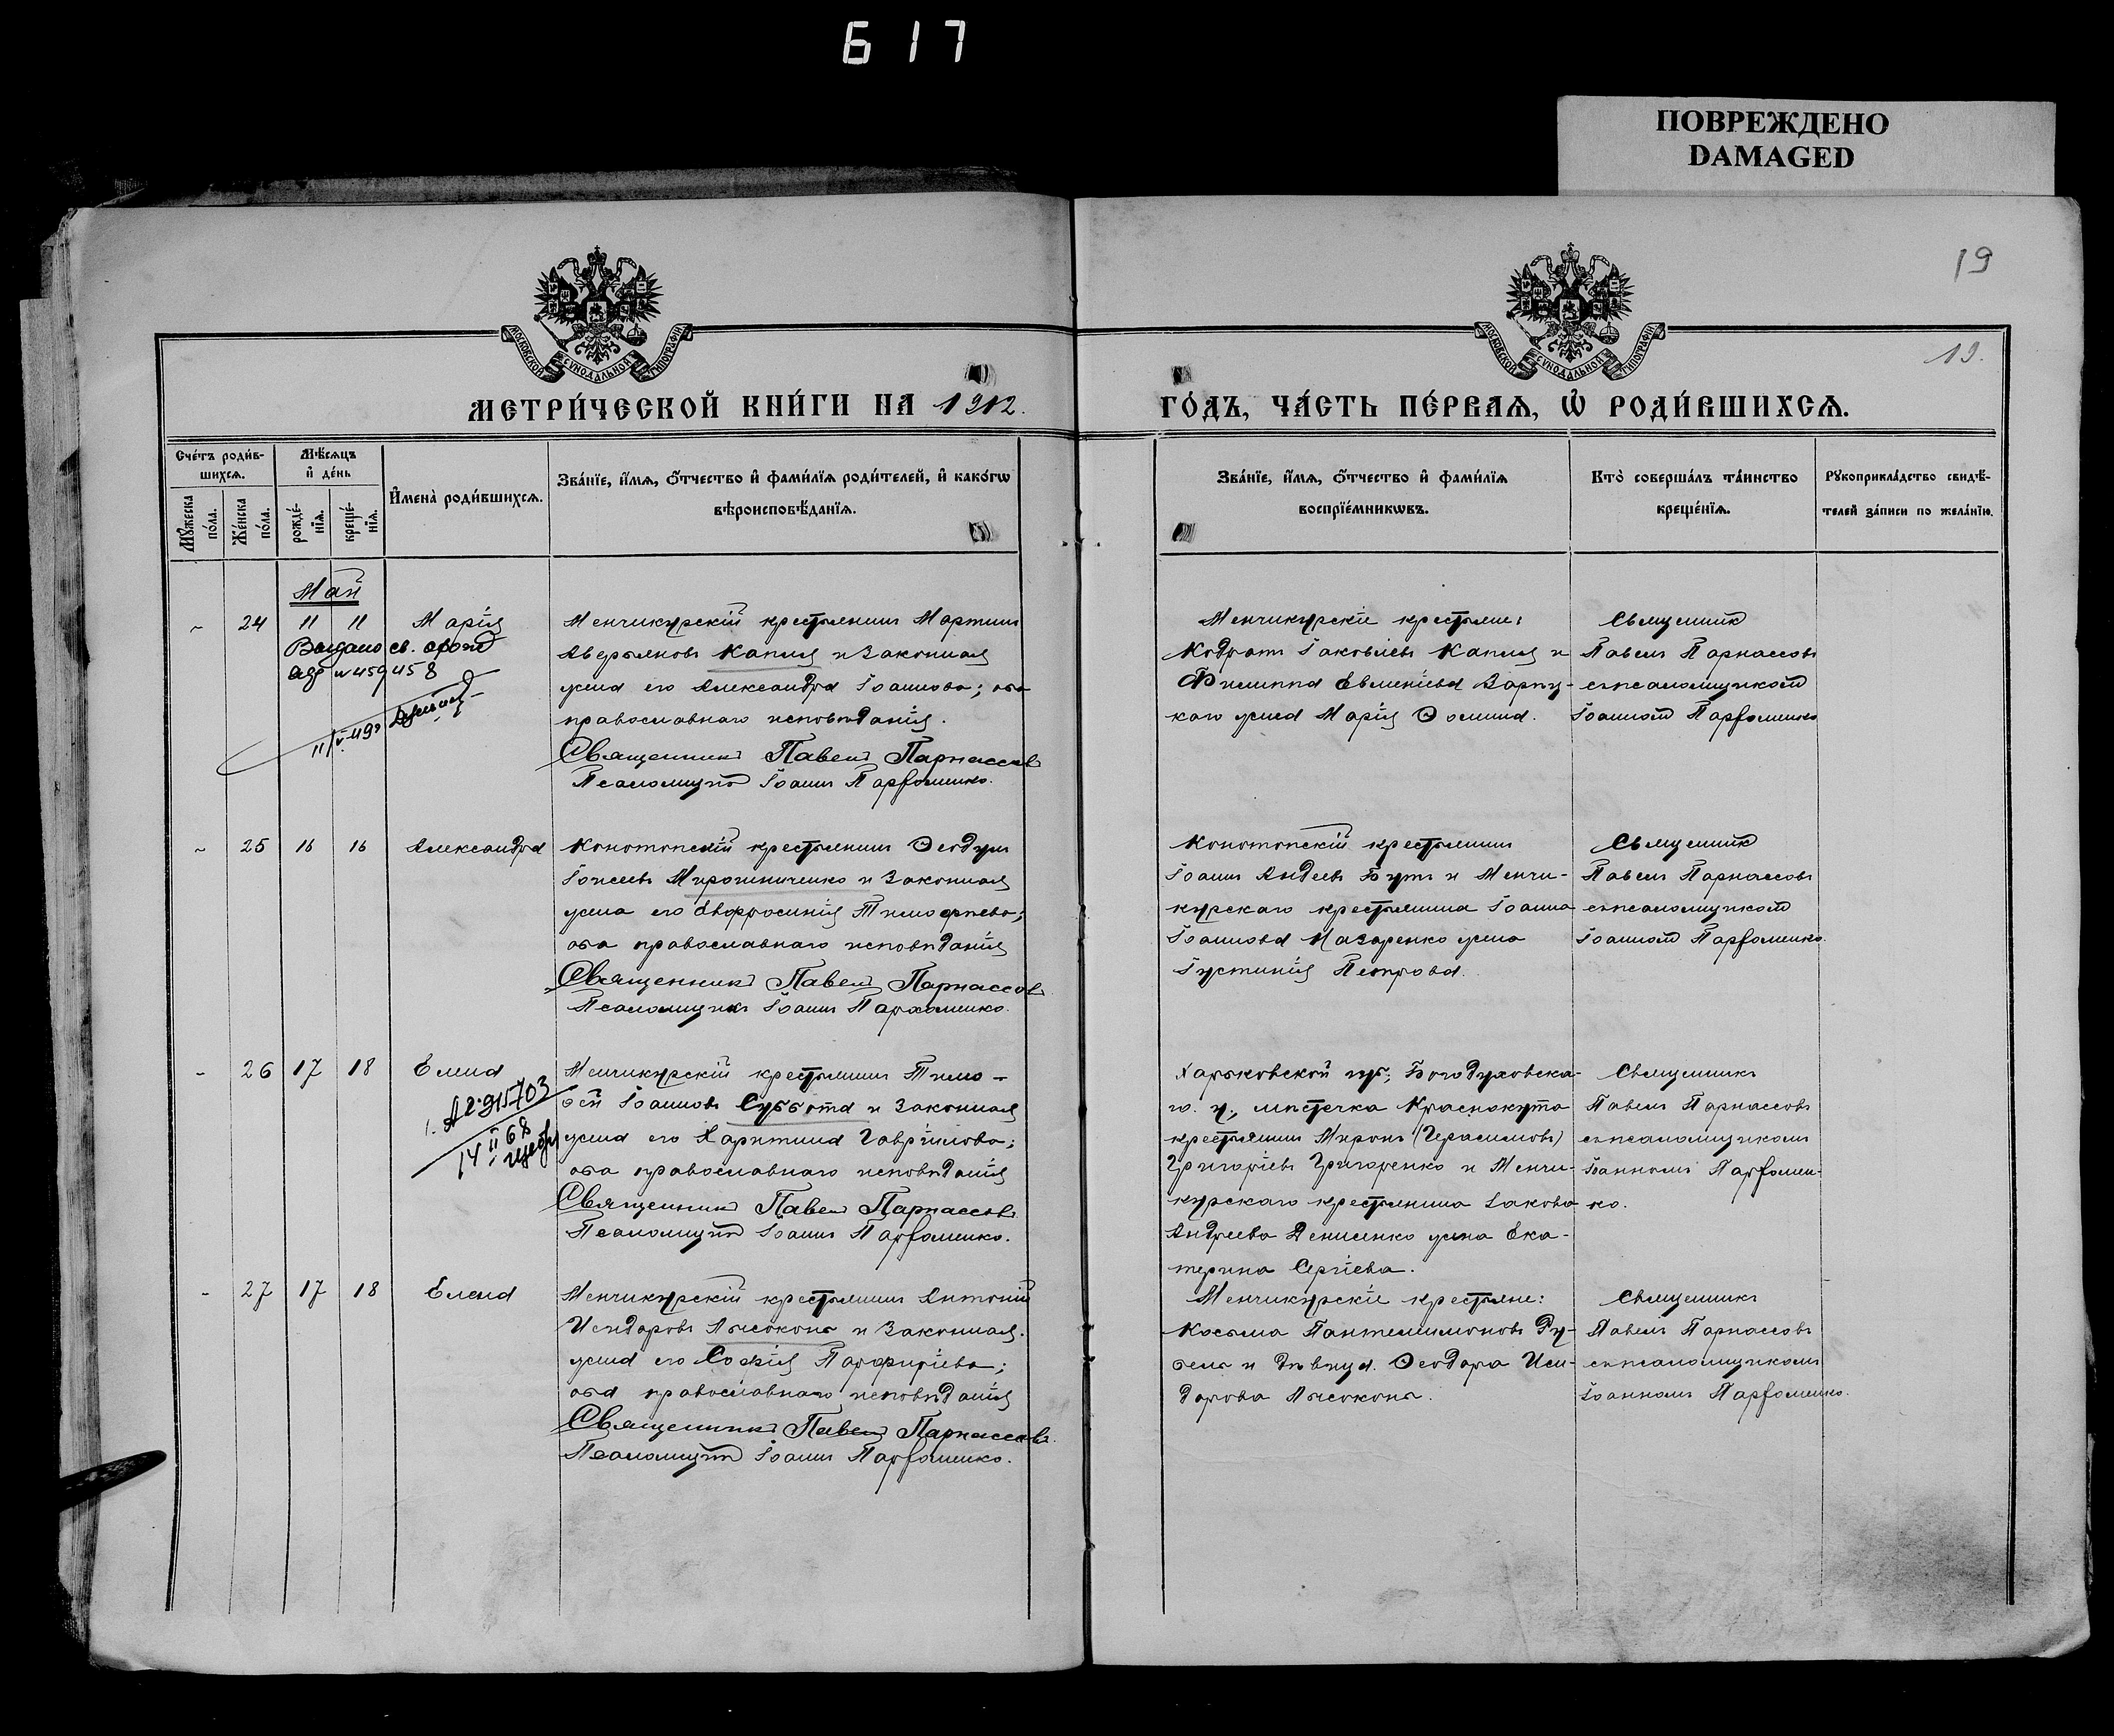 Б 17
ПОВРЕЖДЕНО
DAMAGED
19
19.
МОСКОВСКОЙ СѴНОДАЛЬНОЙ ТИПОГРАФІИ
МОСКОВСКОЙ СѴНОДАЛЬНОЙ ТИПОГРАФІИ
МЕТРИ́ЧЕСКОЙ КНИ́ГИ НА 1912. ГО́ДЪ, ЧА́СТЬ ПЕ́РВАѦ, Ѡ҆ РОДИ́ВШИХСѦ.
Сче́тъ роди́в-
шихсѧ.
Мꙋ́жеска по́ла.
Же́нска по́ла.
Мѣ́сѧцъ и҆ де́нь
рожде́-
нїѧ.
креще́-
нїѧ.
И҆мена̀ роди́вшихсѧ.
Зва́нїе, и҆́мѧ, ѻ҆́тчество и҆ фами́лїѧ роди́телей, и҆ како́гѡ
вѣроисповѣ́данїѧ.
Зва́нїе, и҆́мѧ, ѻ҆́тчество и҆ фами́лїѧ
воспрїе́мникѡвъ.
Кто̀ соверша́лъ та́инство
креще́нїѧ.
Рꙋкоприкла́дство свидѣ́-
телей за́писи по жела́нїю.
Май
~ 24 11 11 Марія
Выдано св. о рожд
№ 459458
Менчикурскій крестьянинъ Мартинъ
Аверьяновъ Капля и законная
жена его Александра Іоаннова; оба
православнаго исповѣданія.
Священникъ Павелъ Парнассовъ
Псаломщикъ Іоаннъ Парфоменко.
Менчикурскіе крестьяне:
Кодратъ Іаковлевъ Капля и
Филиппа Евменіева Зарну-
каго жена Марія Ѳомина.
Священникъ
Павелъ Парнассовъ
съ псаломщикомъ
Іоанномъ Парфоменко
~ 25 16 16 Александра
Конотопскій крестьянинъ Ѳеодулъ
Іоисеевъ Мирошниченко и законная
жена его Евфросинія Тимофѣева;
оба православнаго исповѣданія
Священникъ Павелъ Парнассовъ
Псаломщикъ Іоаннъ Пархоменко.
Конотопскій крестьянинъ
Іоаннъ Андеевъ Бутъ и Менчи-
курскаго крестьянина Іоанна
Іоаннова Назаренко жена
Іустинія Петрова.
Священникъ
Павелъ Парнассовъ
съ псаломщикомъ
Іоанномъ Парфоменко.
- 26 17 18 Елена
А2.915703
14 II 68
Менчикурскій крестьянинъ Тимо-
ѳей Іоанновъ Суббота и законная
жена его Харитина Гавріилова;
оба православнаго исповѣданія
Священникъ Павелъ Парнассовъ
Псаломщикъ Іоаннъ Парфоменко.
Харьковской губ; Богодуховска-
го. у; мѣстечка Краснокута
крестьянинъ Миронъ (Герасимовъ)
Григоріевъ Григоренко и Менчи-
курскаго крестьянина Іакова
Андреева Денисенко жена Ека-
терина Сергіева.
Священникъ
Павелъ Парнассовъ
съ псаломщикомъ
Іоанномъ Парфомен-
ко.
- 27 17 18 Елена
Менчикурскій крестьянинъ Антоній
Исидоровъ Лысоконь и законная.
жена его Софія Парфиріева;
оба православнаго исповѣданія
Священникъ Павелъ Парнассовъ.
Псаломщикъ Іоаннъ Парфоменко.
Менчикурскіе крестьяне:
Косьма Пантелимоновъ Ру-
бель и дѣвица. Ѳеодора Иси-
дорова Лысоконь.
Священникъ
Павелъ Парнассовъ
съ псаломщикомъ
Іоанномъ Парфоменко.